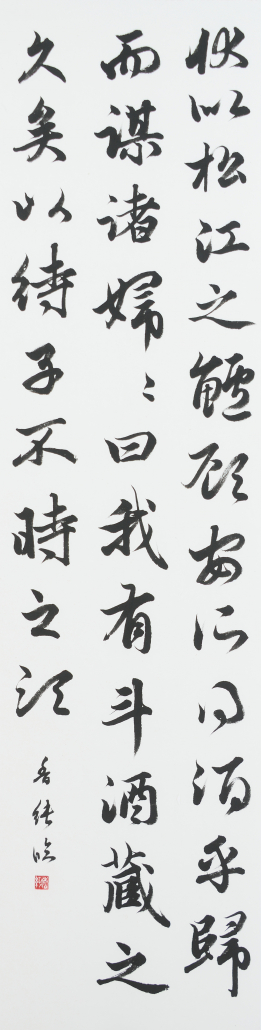 狀似松江之鱸顧安所得酒乎歸
而謀諸婦〻曰我有斗酒藏之
久矣以待子不時之須